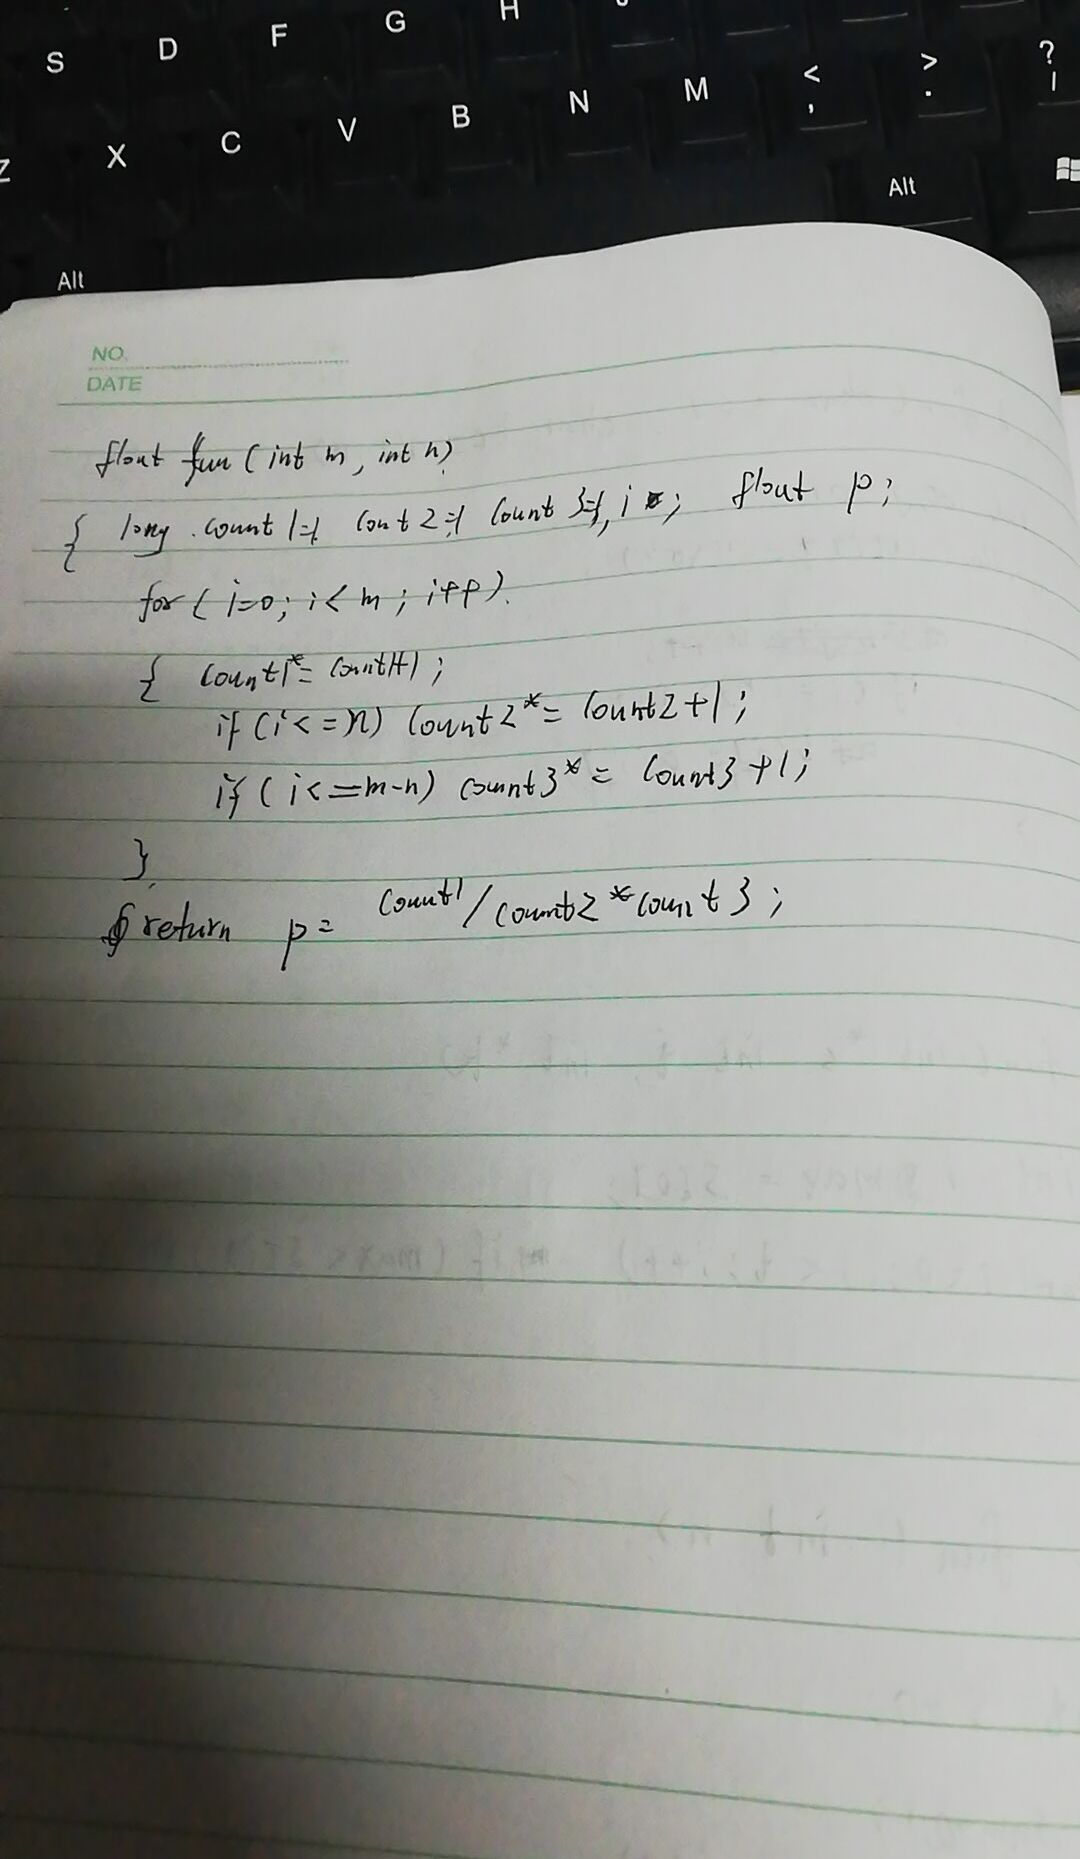 H
S D F G
? /
Z X C V B N M < , > .
Alt
Alt
NO.
DATE
float fun (int m, int n)
{ long count1=1, count2=1, count3=1, i; float p;
for (i=0; i<m; i++)
{ count1*= count1+1;
if (i<=n) count2*= count2+1;
if (i<=m-n) count3*= count3+1;
}
return p= count1/count2*count3;